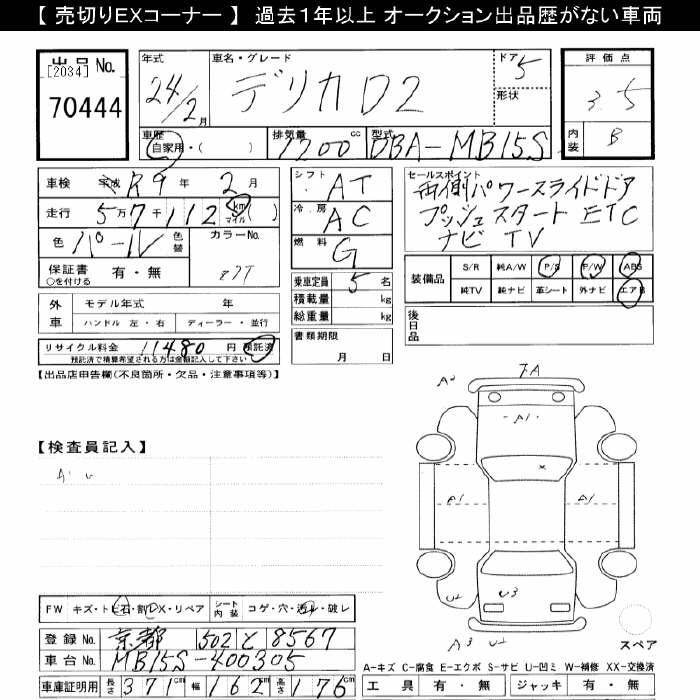 【 売切りEXコーナー 】 過去１年以上 オークション出品歴がない車両
出品 No.
[2034]
70444
年式 24/2月
車名・グレード デリカD2
ドア 5
形状
評価点 3.5
内装 B
車歴 自家用・( )
排気量 1200 cc
型式 DBA-MB15S
車検 平成 R9年 2月
走行 5万7千112 km マイル ( )
色 パール 色替
カラーNo. Z7T
保証書 有・無
○を付ける
外車 モデル年式 年
ハンドル 左・右 ディーラー・並行
リサイクル料金 11480円 預託済
預託済で積算希望される方は金額記入して下さい
シフト AT
冷房 AC
燃料 G
乗車定員 5名
積載量 kg
総重量 kg
書類期限
月 日
セールスポイント
両側パワースライドドア
プッシュスタート ETC
ナビ TV
装備品 S/R 純A/W P/S P/W ABS
純TV 純ナビ 革シート 外ナビ エアB
後日品
【出品店申告欄(不良箇所・欠品・注意事項等)】
【検査員記入】
A1 U
A2 7A
A1
X
A1 A1
U2 U3
A3 U2
スペア
FW キズ・トビ石・割・X・リペア シート内装 コゲ・穴・汚レ・破レ
登録 No. 京都 502 と 8567
車台 No. MB15S-400305
車庫証明用 長さ 371cm 幅 162cm 高さ 176cm
A-キズ C-腐食 E-エクボ S-サビ U-凹ミ W-補修 XX-交換済
工具 有・無 ジャッキ 有・無